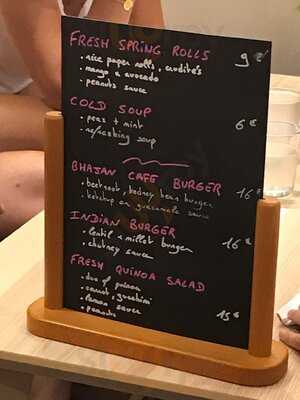 FRESH SPRING ROLLS 9 €
• rice paper rolls, crudité's
• mango & avocado
• peanuts sauce
COLD SOUP 6 €
• peas + mint
• refreshing soup
BHAJAN CAFE BURGER 16 €
• beetroot, kidney bean burger
• ketchup or guacamole sauce
INDIAN BURGER 16 €
• lentil & millet burger
• chutney sauce
FRESH QUINOA SALAD 15 €
• duo of quinoa
• carrot, zucchini
• lemon sauce
• peanuts